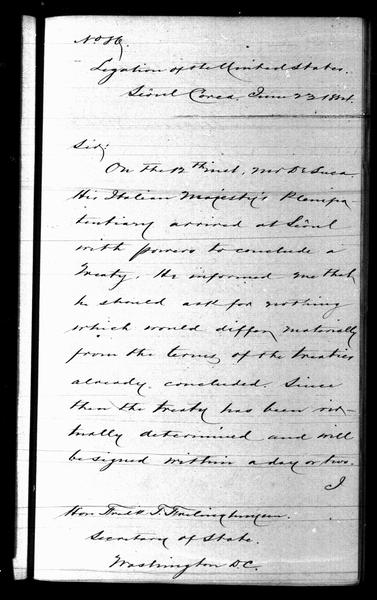 Legation of the United States.
Seoul Corea, June 23 1884.
Sir;
On the 12th inst, Mr De Luca
His Italian Majesty's Plenipo-
tentiary arrived at Seoul
with powers to conclude a
Treaty. He informed me that
he should ask for nothing
which would differ materially
from the terms of the treaties
already concluded. Since
then the treaty has been vir-
tually determined and will
be signed within a day or two.
I
Hon. Fredk T. Frelinghuysen.
Secretary of State.
Washington D.C.